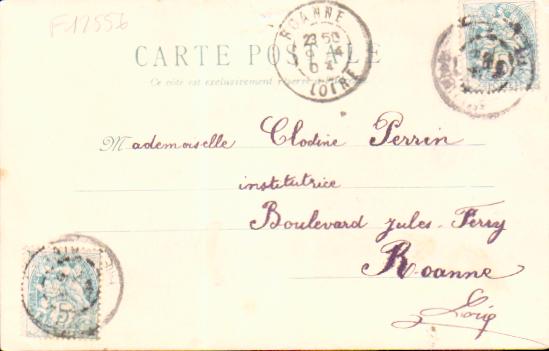 F17556
CARTE POSTALE
Ce côté est exclusivement réservé
ROANNE
23 50
9 4
04
LOIRE
Mademoiselle Clodine Perrin
institutrice
Boulevard Jules-Ferry
Roanne
Loire